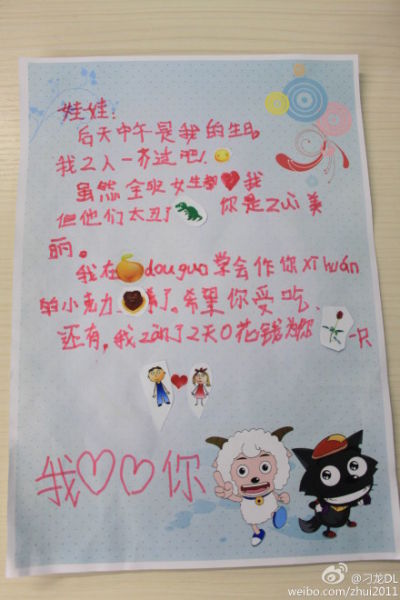 娃娃：
后天中午是我的生日。
我2人一齐过吧！
虽然全班女生都我
但他们太丑了 你是Zui美
丽。
我在douguo学会作你xǐ huán
的小克力 来了。希望你爱吃、
还有，我zǎn了2天0花钱为你 一只
我♡♡你
@刁龙DL
weibo.com/zhui2011